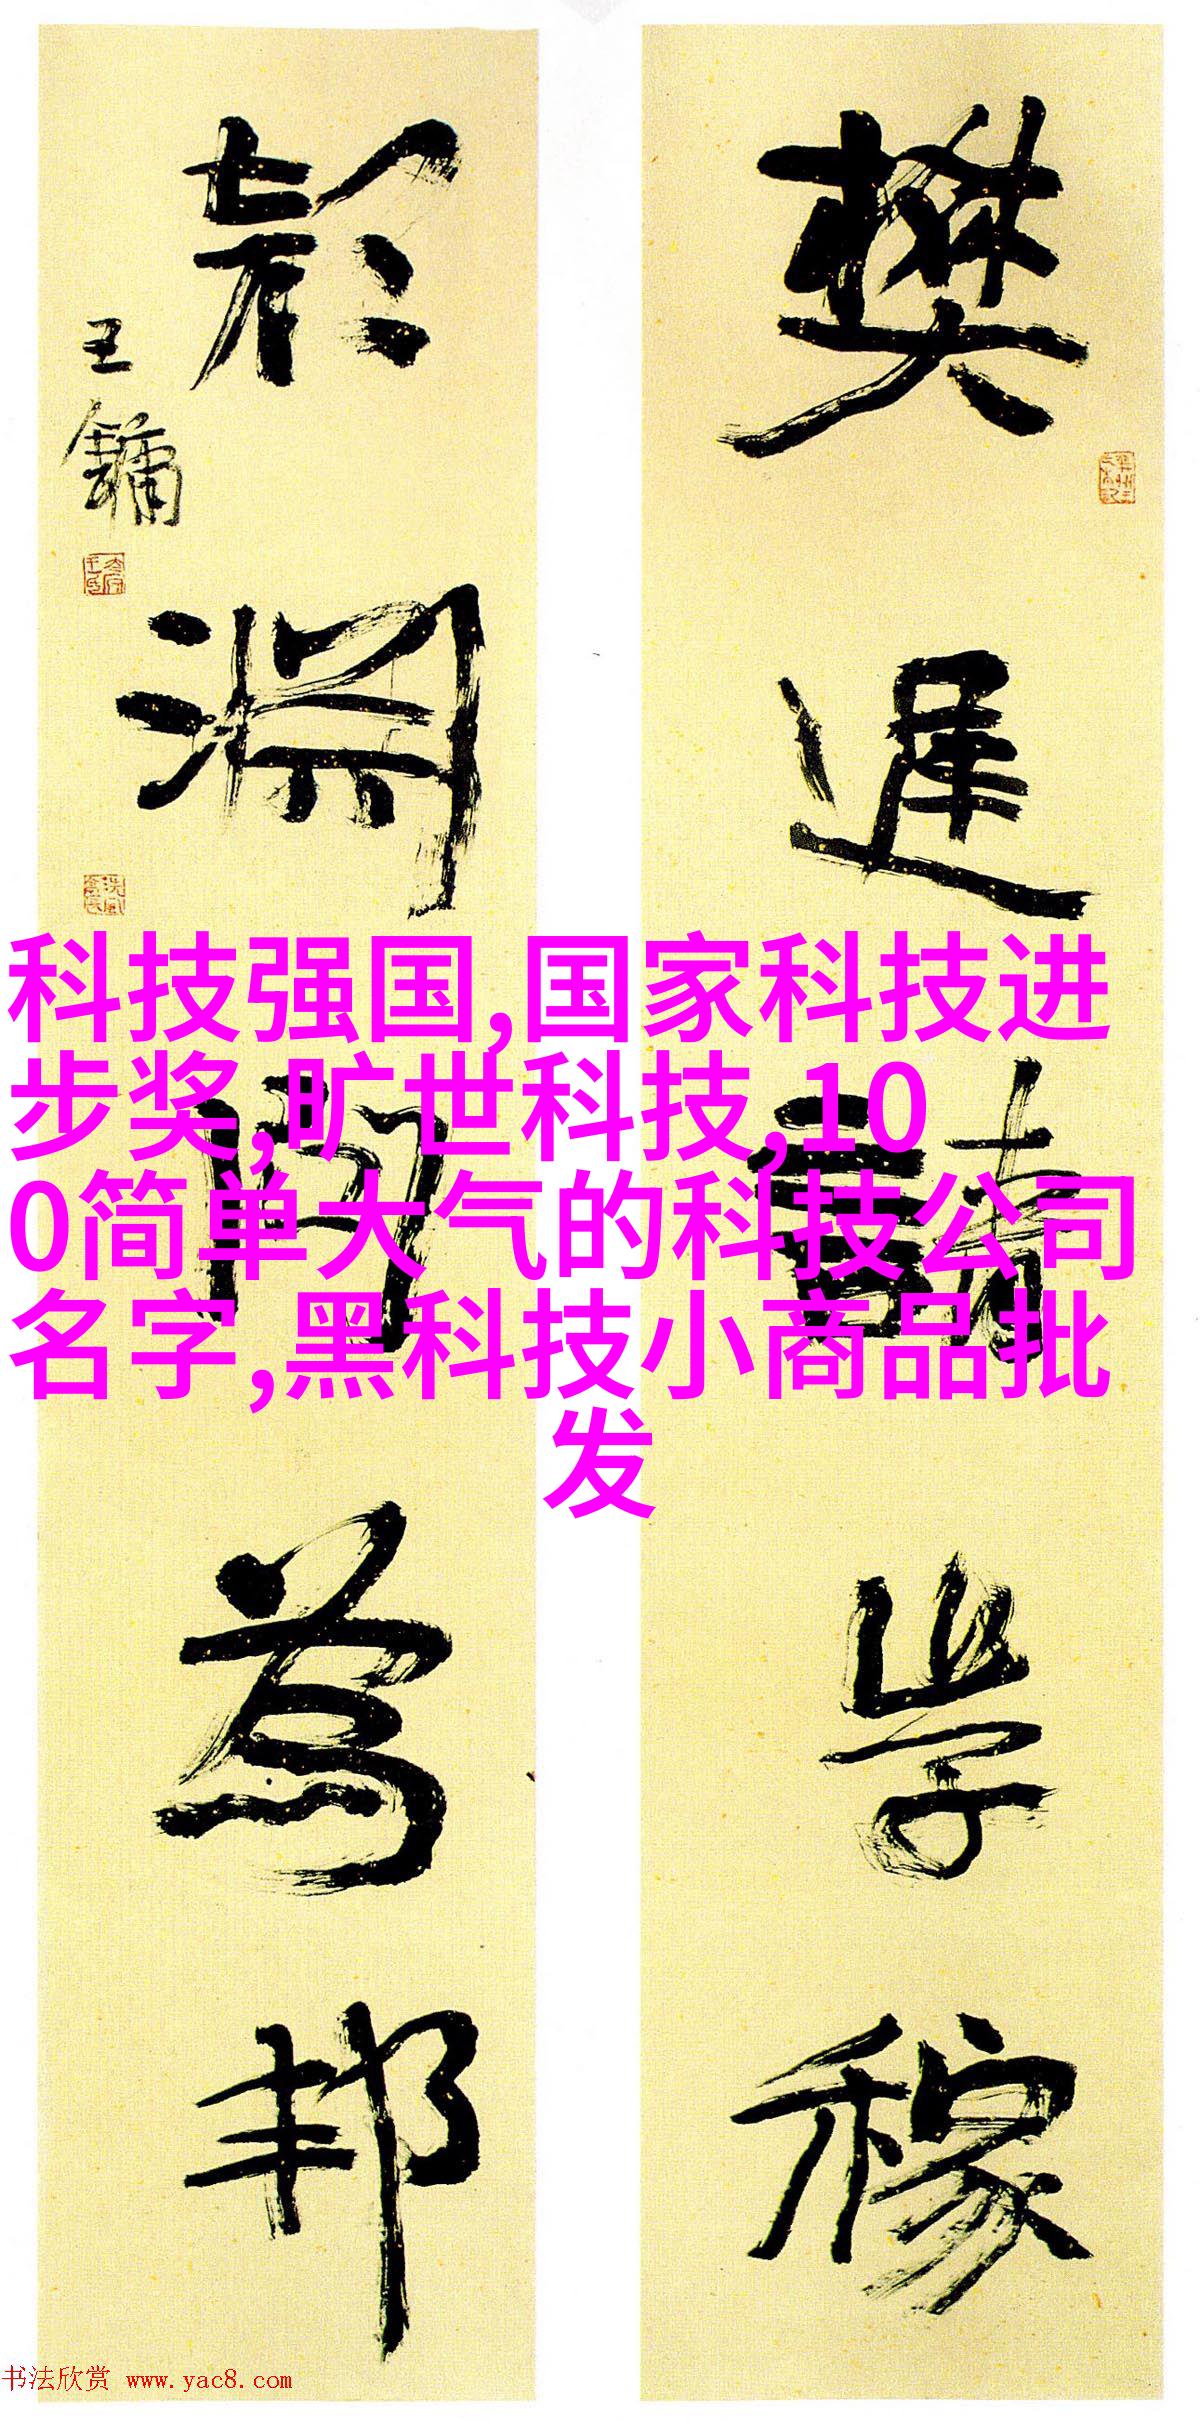 樊遲請學稼
顔淵問為邦
王鏞
科技强国,国家科技进
步奖,旷世科技,10
0简单大气的科技公司
名字,黑科技小商品批
发
书法欣赏 www.yac8.com